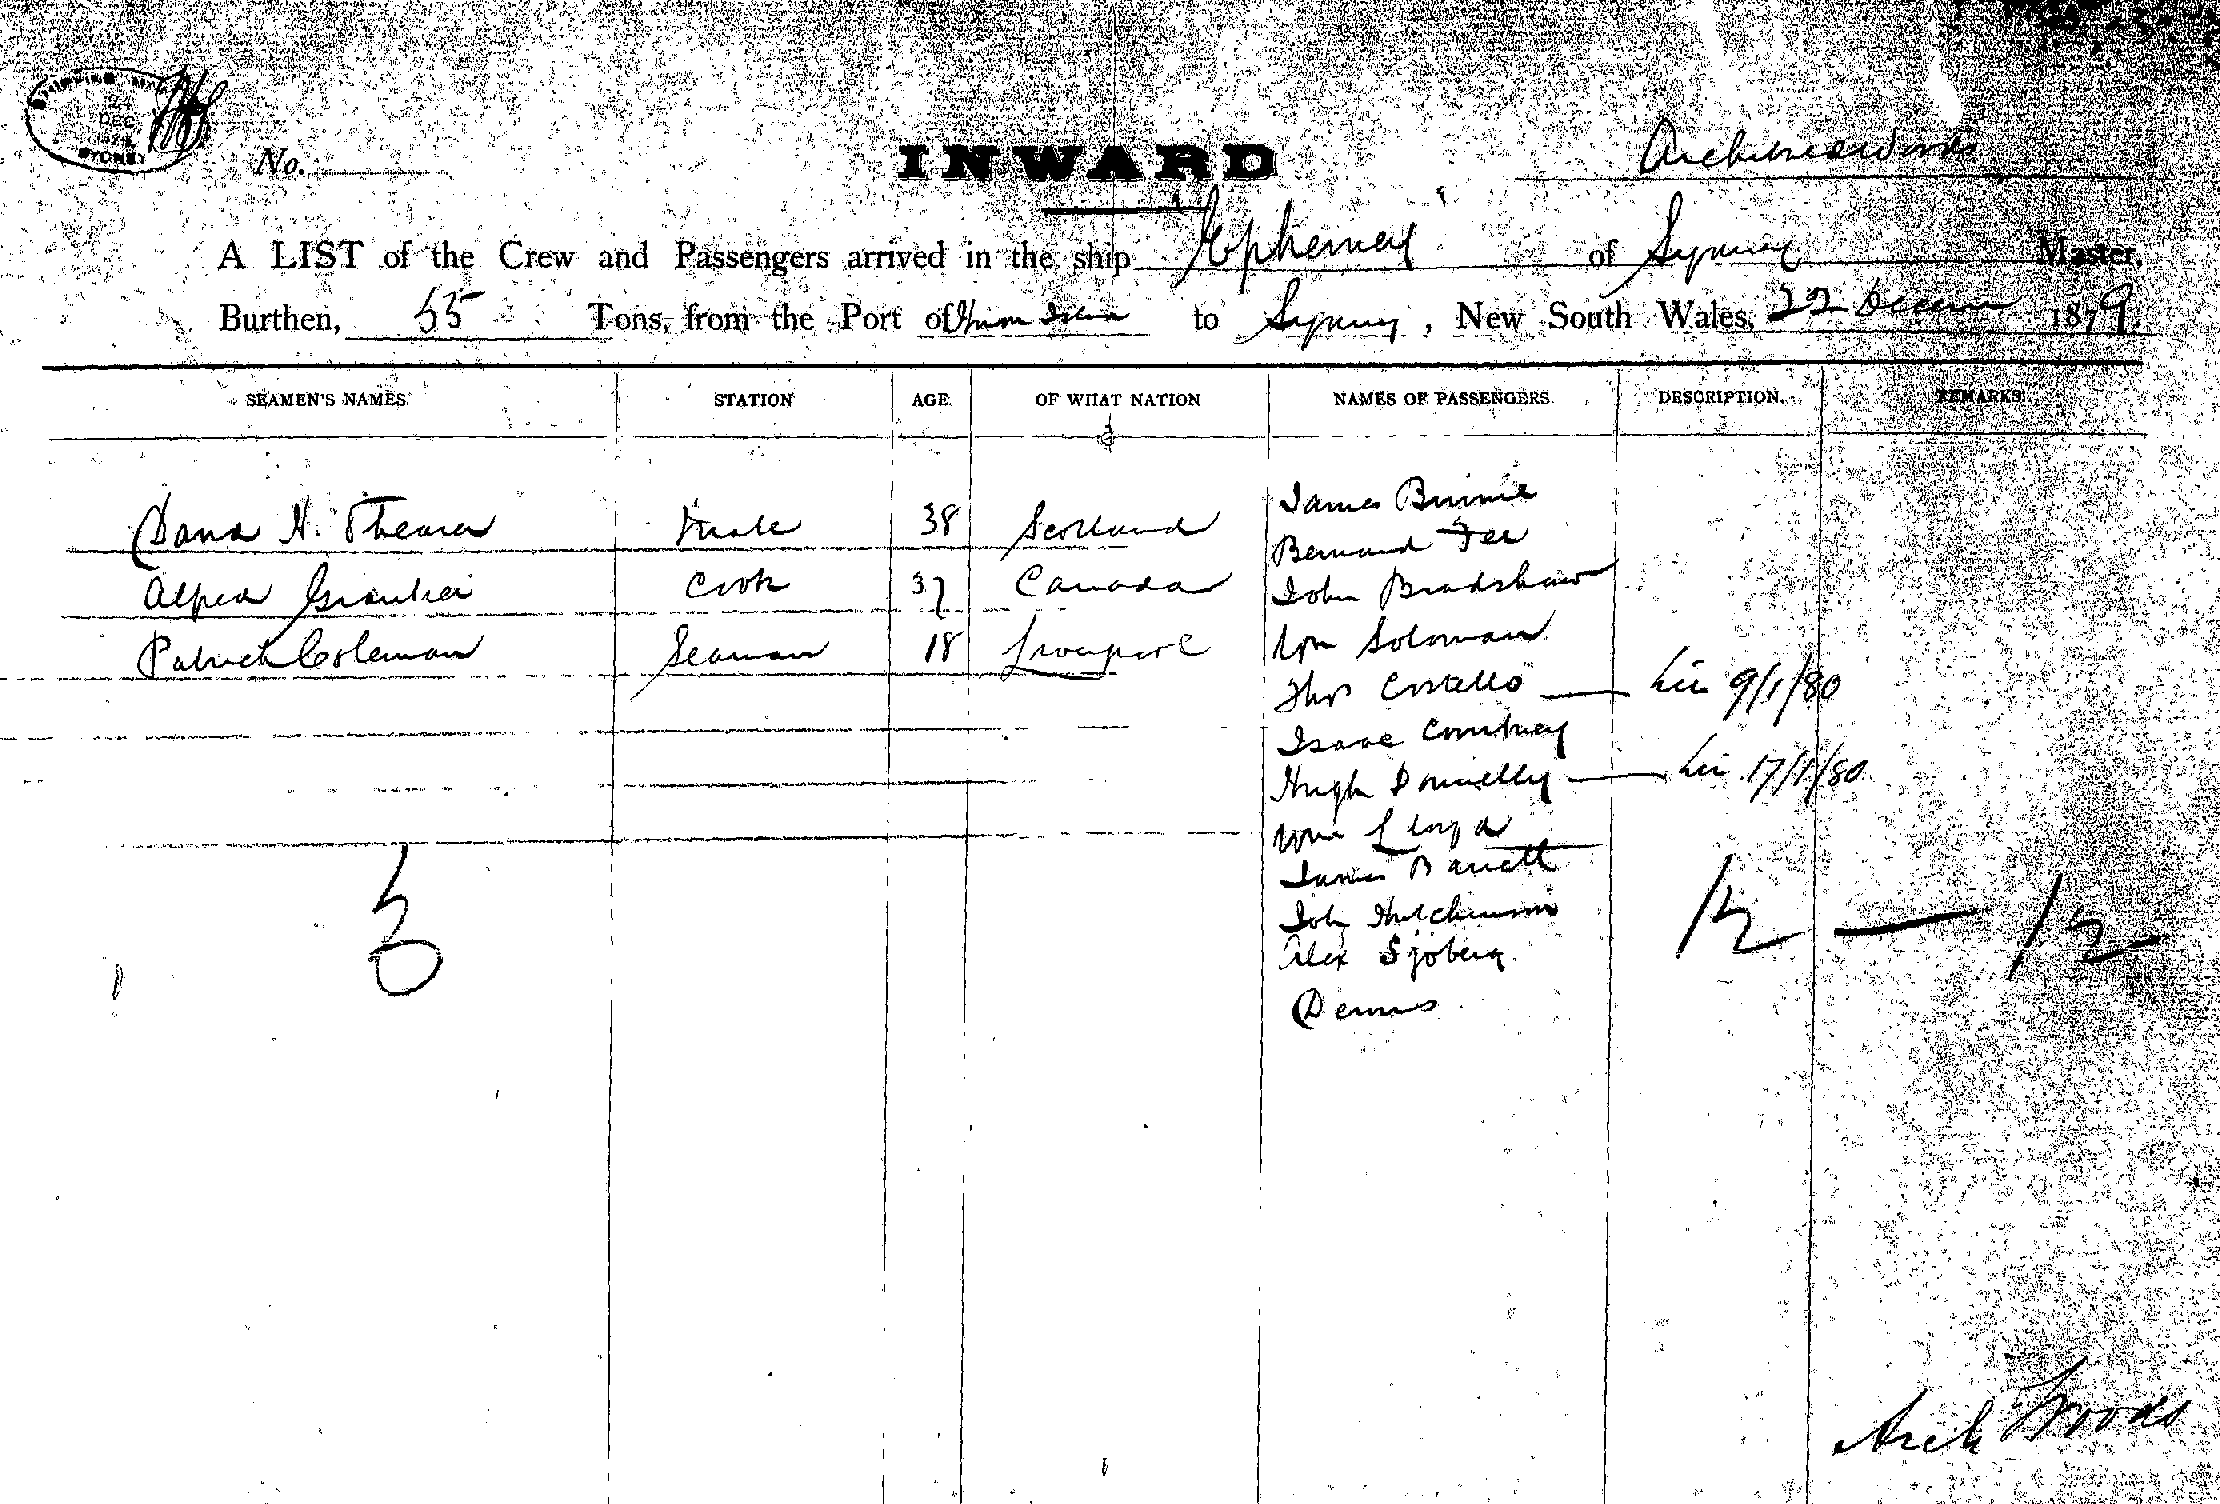 SHIPPING
DEC
SYDNEY
No.
INWARD
Archibald Woods
A LIST of the Crew and Passengers arrived in the ship Ephemey of Sydney Master,
Burthen, 55 Tons, from the Port of to Sydney, New South Wales, 22 Decem 1879.
SEAMEN'S NAMES STATION AGE OF WHAT NATION NAMES OF PASSENGERS DESCRIPTION. REMARKS
James Binnie
David H. Mate 38 Scotland
Bernard Fee
Alfred Cook 37 Canada John Bradshaw
Patrick Coleman Seaman 18 Liverpool Wm Soloman
Thos Costello — Lic 9/1/80
Isaac Courtney
Hugh Donnelly — Lic 17/1/80
Wm Lloyd
James Barrett
3 John Hutchinson 12 — 12
Alex Sjoberg
Dennis
Arch Woods